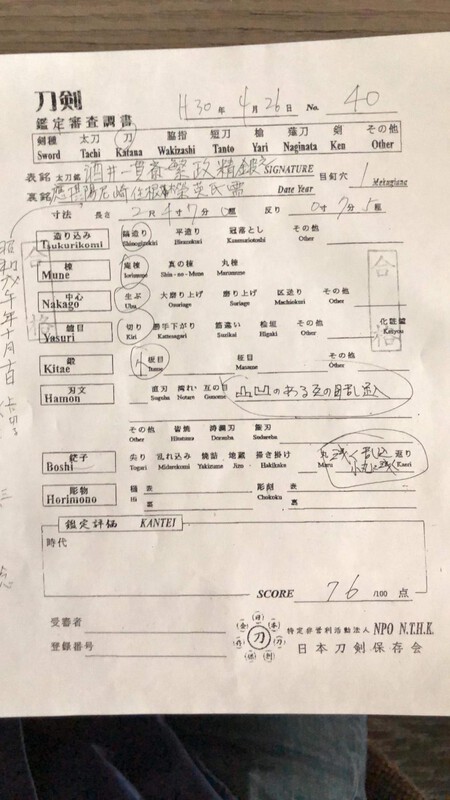 刀剣
鑑定審査調書
H30年 4月26日 No. 40
剣種 太刀 刀 脇指 短刀 槍 薙刀 剣 その他
Sword Tachi Katana Wakizashi Tanto Yari Naginata Ken Other
表銘 太刀銘 酒井一貫斎繁政精鍛之 SIGNATURE 目釘穴 1 Mekugiana
裏銘 應 陽尼崎住 榮 氏需 Date Year
寸法 長さ 2尺4寸7分 反り 0寸7分5厘
造り込み 鎬造り 平造り 冠落とし その他
Tsukurikomi Shinogizukuri Hirazukuri Kanmuriotoshi Other
棟 庵棟 真の棟 丸棟
Mune Iorimune Shin-no-Mune Marumune
中心 生ぶ 大磨り上げ 磨り上げ 区送り その他
Nakago Ubu Osuriage Suriage Machiokuri Other
鑢目 切り 勝手下がり 筋違い 桧垣 その他 化粧鑢
Yasuri Kiri Kattesagari Sujikai Higaki Other Kesyou
鍛 板目 柾目 その他
Kitae Itame Masame Other
刃文 直刃 湾れ 互の目 凸凹のある互の目乱込
Hamon Suguha Notare Gunome
その他 皆焼 濤瀾刃 簾刃
Other Hitatsura Doranba Sudareba
鋩子 尖り 乱れ込み 焼詰 地蔵 掃き掛け 丸 浅く乱込 返り
Boshi Togari Midarekomi Yakizume Jizo Hakikake Maru 小丸 Kaeri
彫物 樋 表 彫刻 表
Horimono Hi 裏 Chokoku 裏
合格
合格
鑑定評価 KANTEI
時代
SCORE 76 /100 点
受審者
登録番号
刀
特定非営利活動法人 NPO N.T.H.K.
日本刀剣保存会